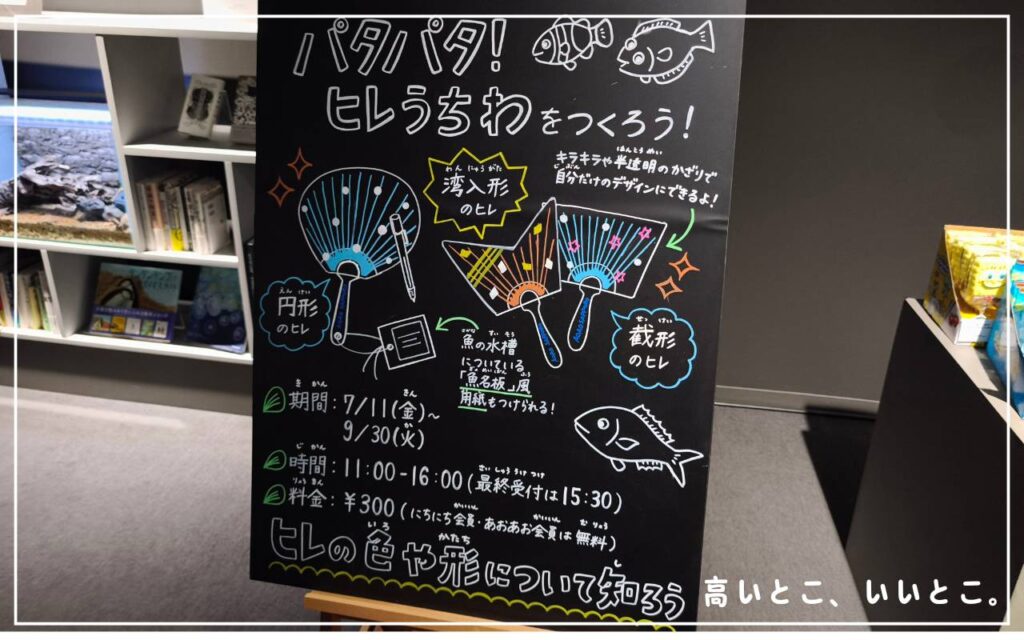 パタパタ!
ヒレうちわをつくろう!
キラキラや半透明のかざりで
自分だけのデザインにできるよ!
湾入形
のヒレ
円形
のヒレ
截形
のヒレ
魚の水槽
についている
「魚名板」風
用紙もつけられる!
期間:7/11(金)~
9/30(火)
時間:11:00-16:00(最終受付は15:30)
料金:¥300(にちにち会員・あおあお会員は無料)
ヒレの色や形について知ろう
高いとこ、いいとこ。